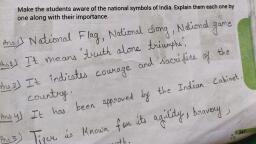 Make the students aware of the national symbols of India. Explain them each one by
one along with their importance.
Ans 1) National Flag, National Song, National game
Ans 2) It means 'truth alone triumphs'.
Ans 3) It indicates courage and sacrifice of the
country.
Ans 4) It has been approved by the Indian Cabinet.
Ans 5) Tiger is known for its agility, bravery,